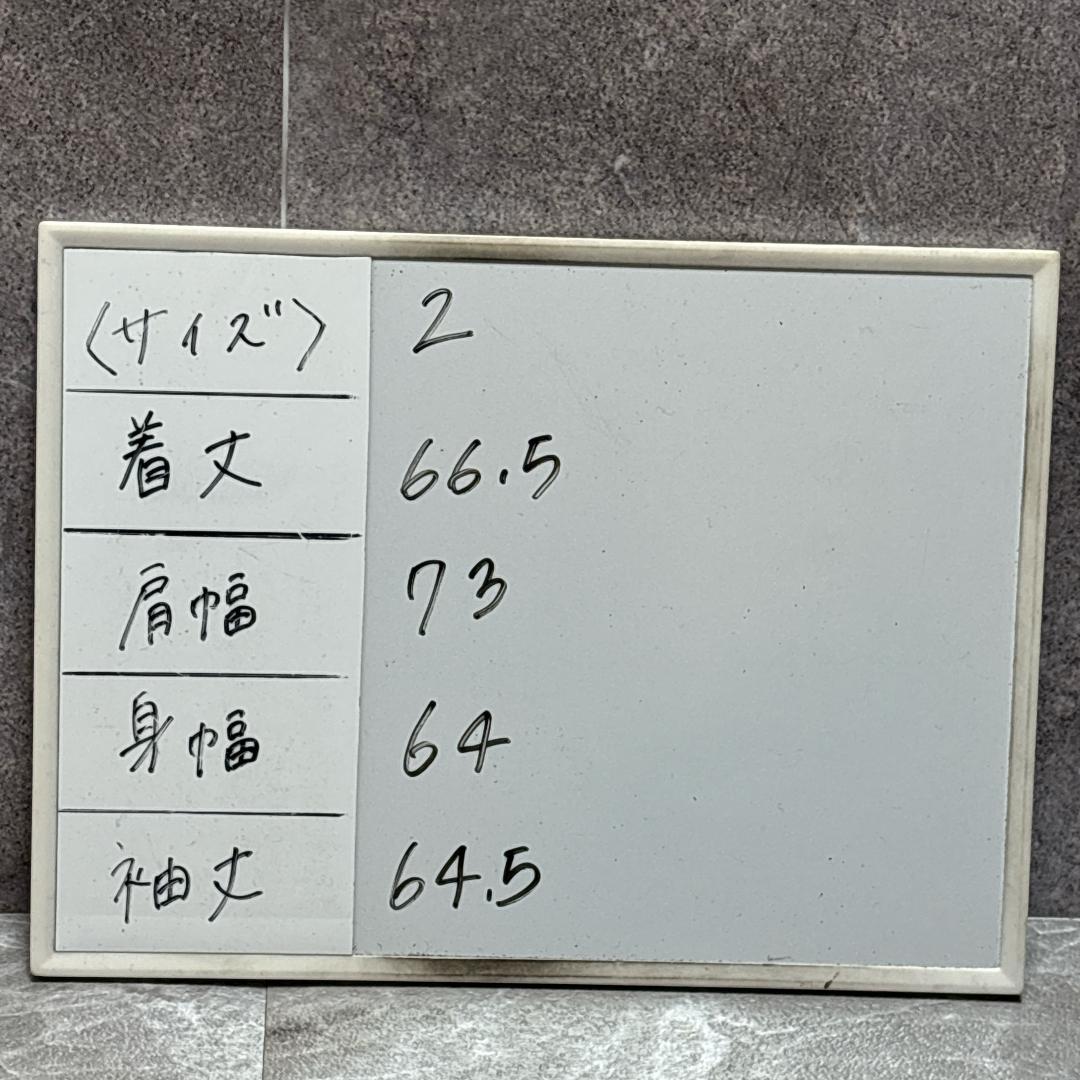 〈サイズ〉 2
着丈 66.5
肩幅 73
身幅 64
袖丈 64.5